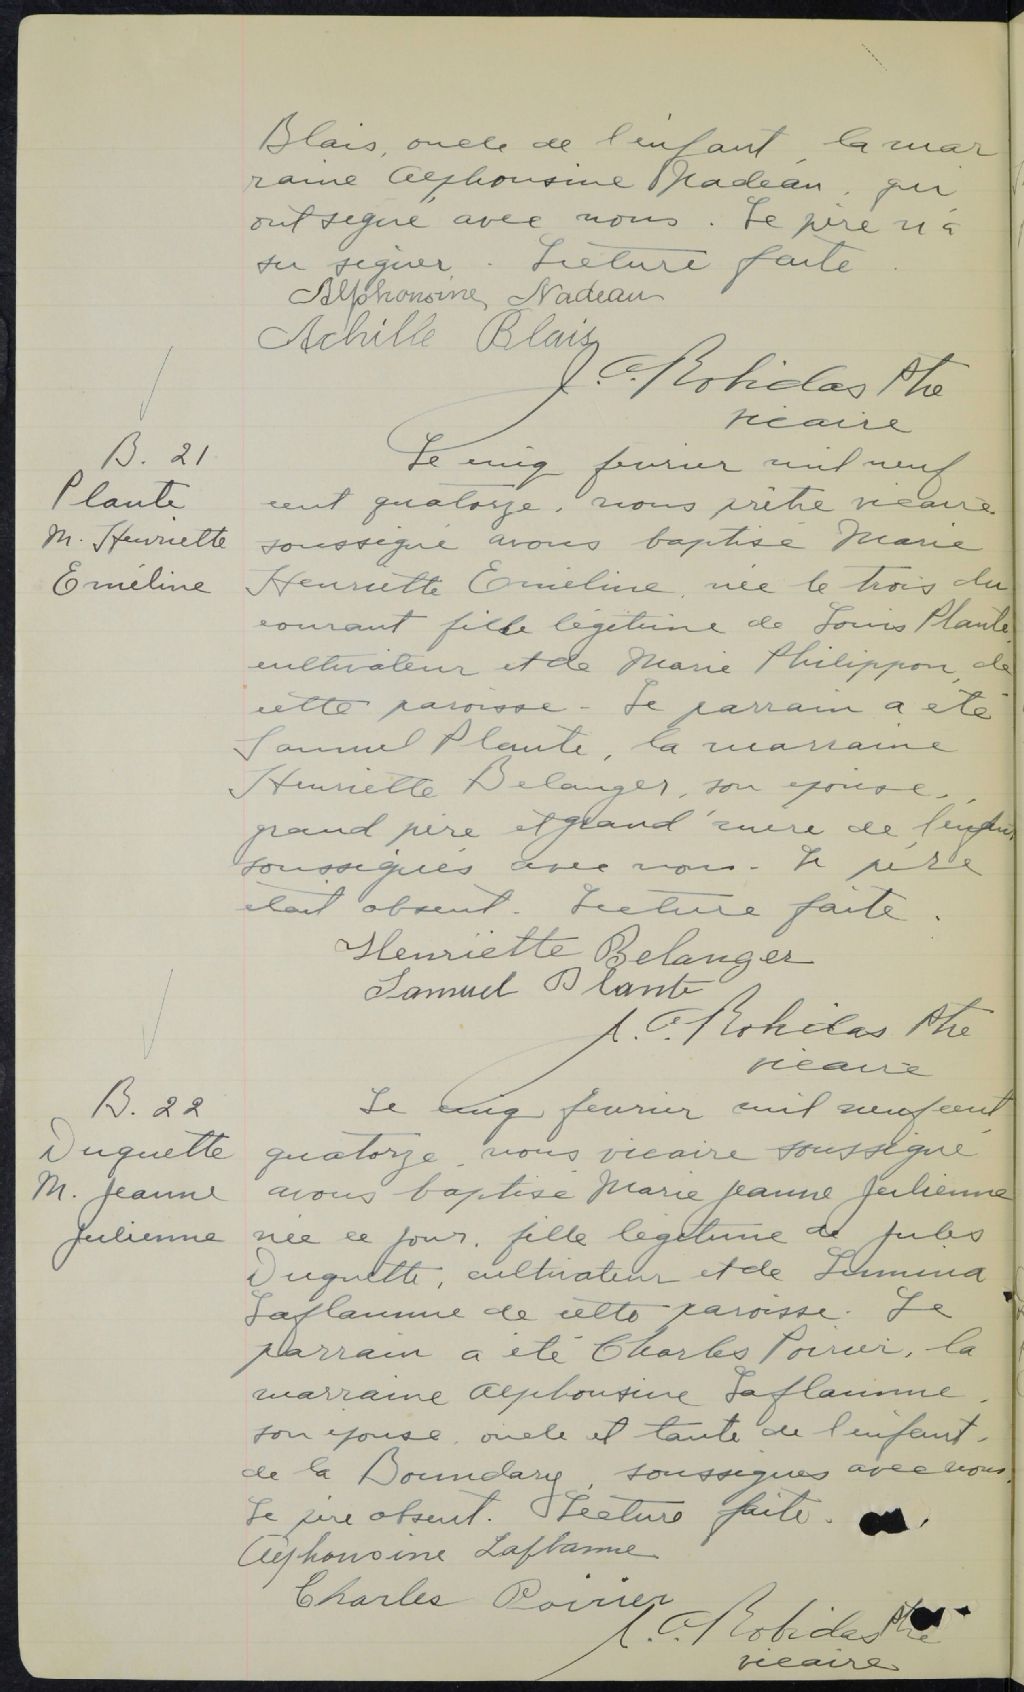 Blais, oncle de l'enfant, la mar
raine Alphonsine Nadeau, qui
ont signé avec nous. Le père n'a
su signer. Lecture faite.
Alphonsine Nadeau
Achille Blais
J. C. Robidas Ptre
vicaire
B. 21
Plante
M. Henriette
Eméline
Le cinq fevrier mil neuf
cent quatorze, nous prêtre vicaire
soussigné avons baptisé Marie
Henriette Emeline, née le trois du
courant fille légitime de Louis Plante
cultivateur et de Marie Philippon, de
cette paroisse - Le parrain a été
Samuel Plante, la marraine
Henriette Belanger, son epouse,
grand père et grand'mère de l'enfant
soussignés avec nous - Le père
était absent. Lecture faite.
Henriette Belanger
Samuel Plante
J. C. Robidas Ptre
vicaire
B. 22
Duquette
M. Jeanne
Julienne
Le cinq fevrier mil neuf cent
quatorze, nous vicaire soussigné
avons baptisé Marie Jeanne Julienne
née ce jour, fille légitime de Jules
Duquette, cultivateur et de
Laflamme de cette paroisse. Le
parrain a été Charles Poirier, la
marraine Alphonsine Laflamme,
son épouse, oncle et tante de l'enfant,
de la Boundary, soussignés avec nous.
Le père absent. Lecture faite.
Alphonsine Laflamme
Charles Poirier
J. C. Robidas Ptre
vicaire